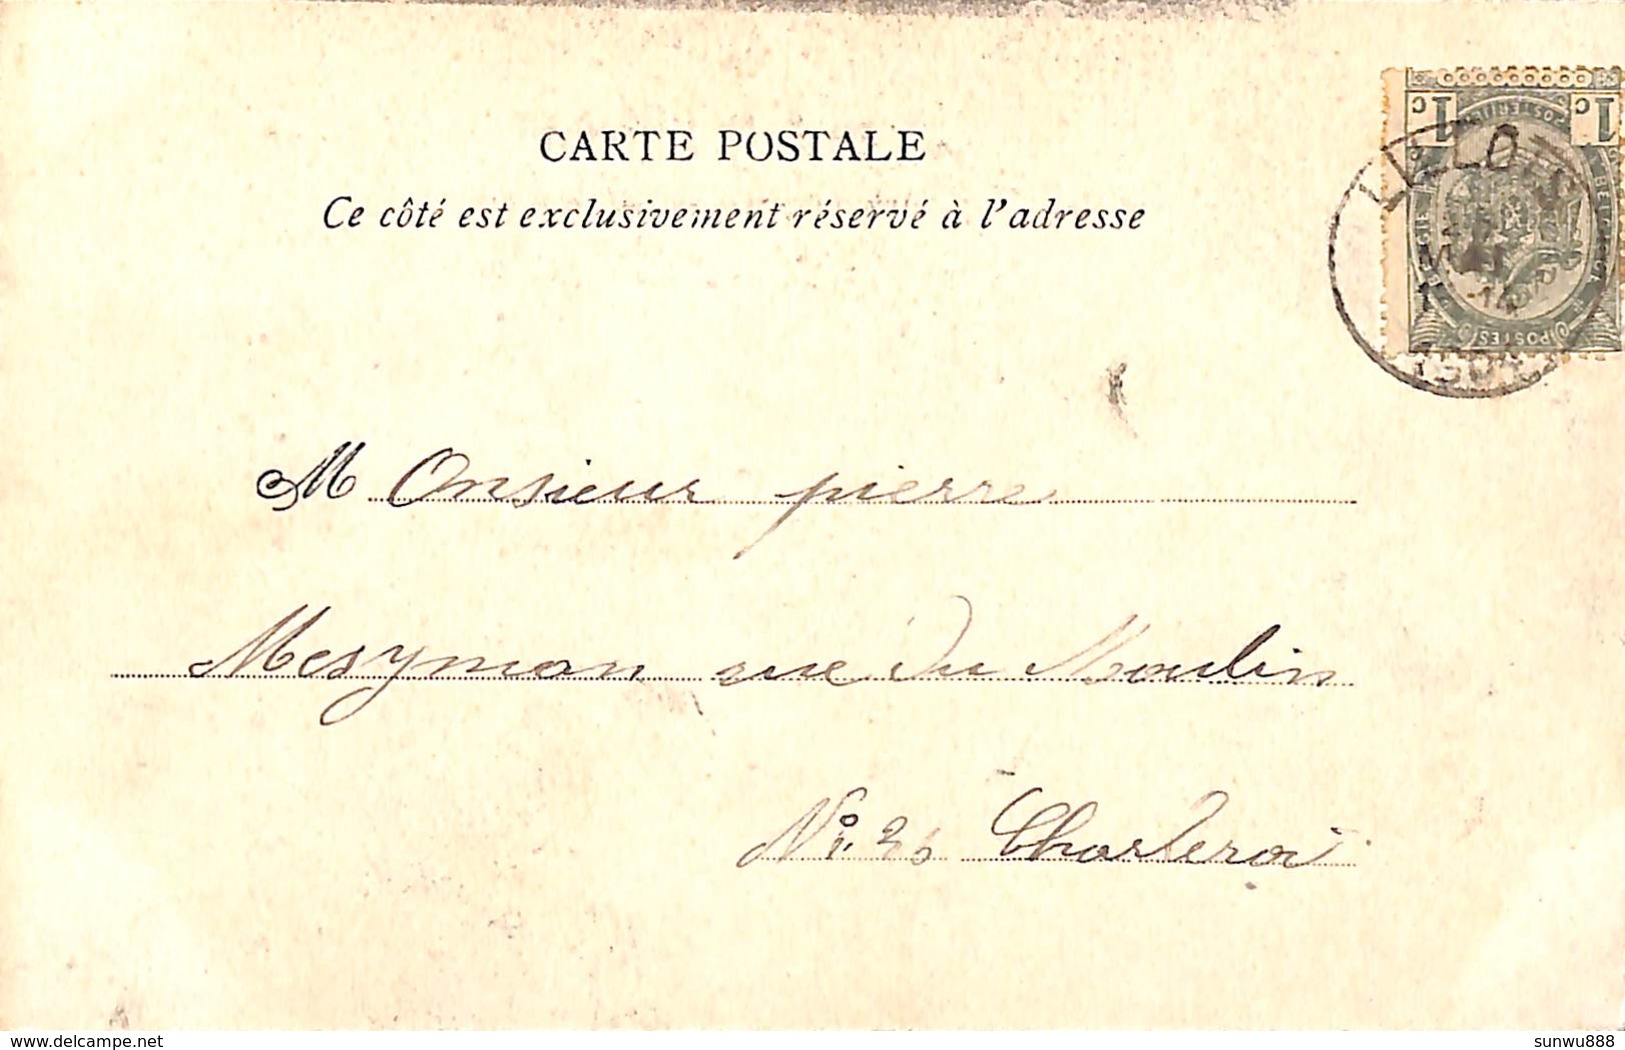 CARTE POSTALE
Ce côté est exclusivement réservé à l'adresse
1c 1c
POSTES
LILLOIS
14
M Onsieur pierre
Mesyman rue du Moulin
No. 26 Charleroi
delcampe.net
sunwu888